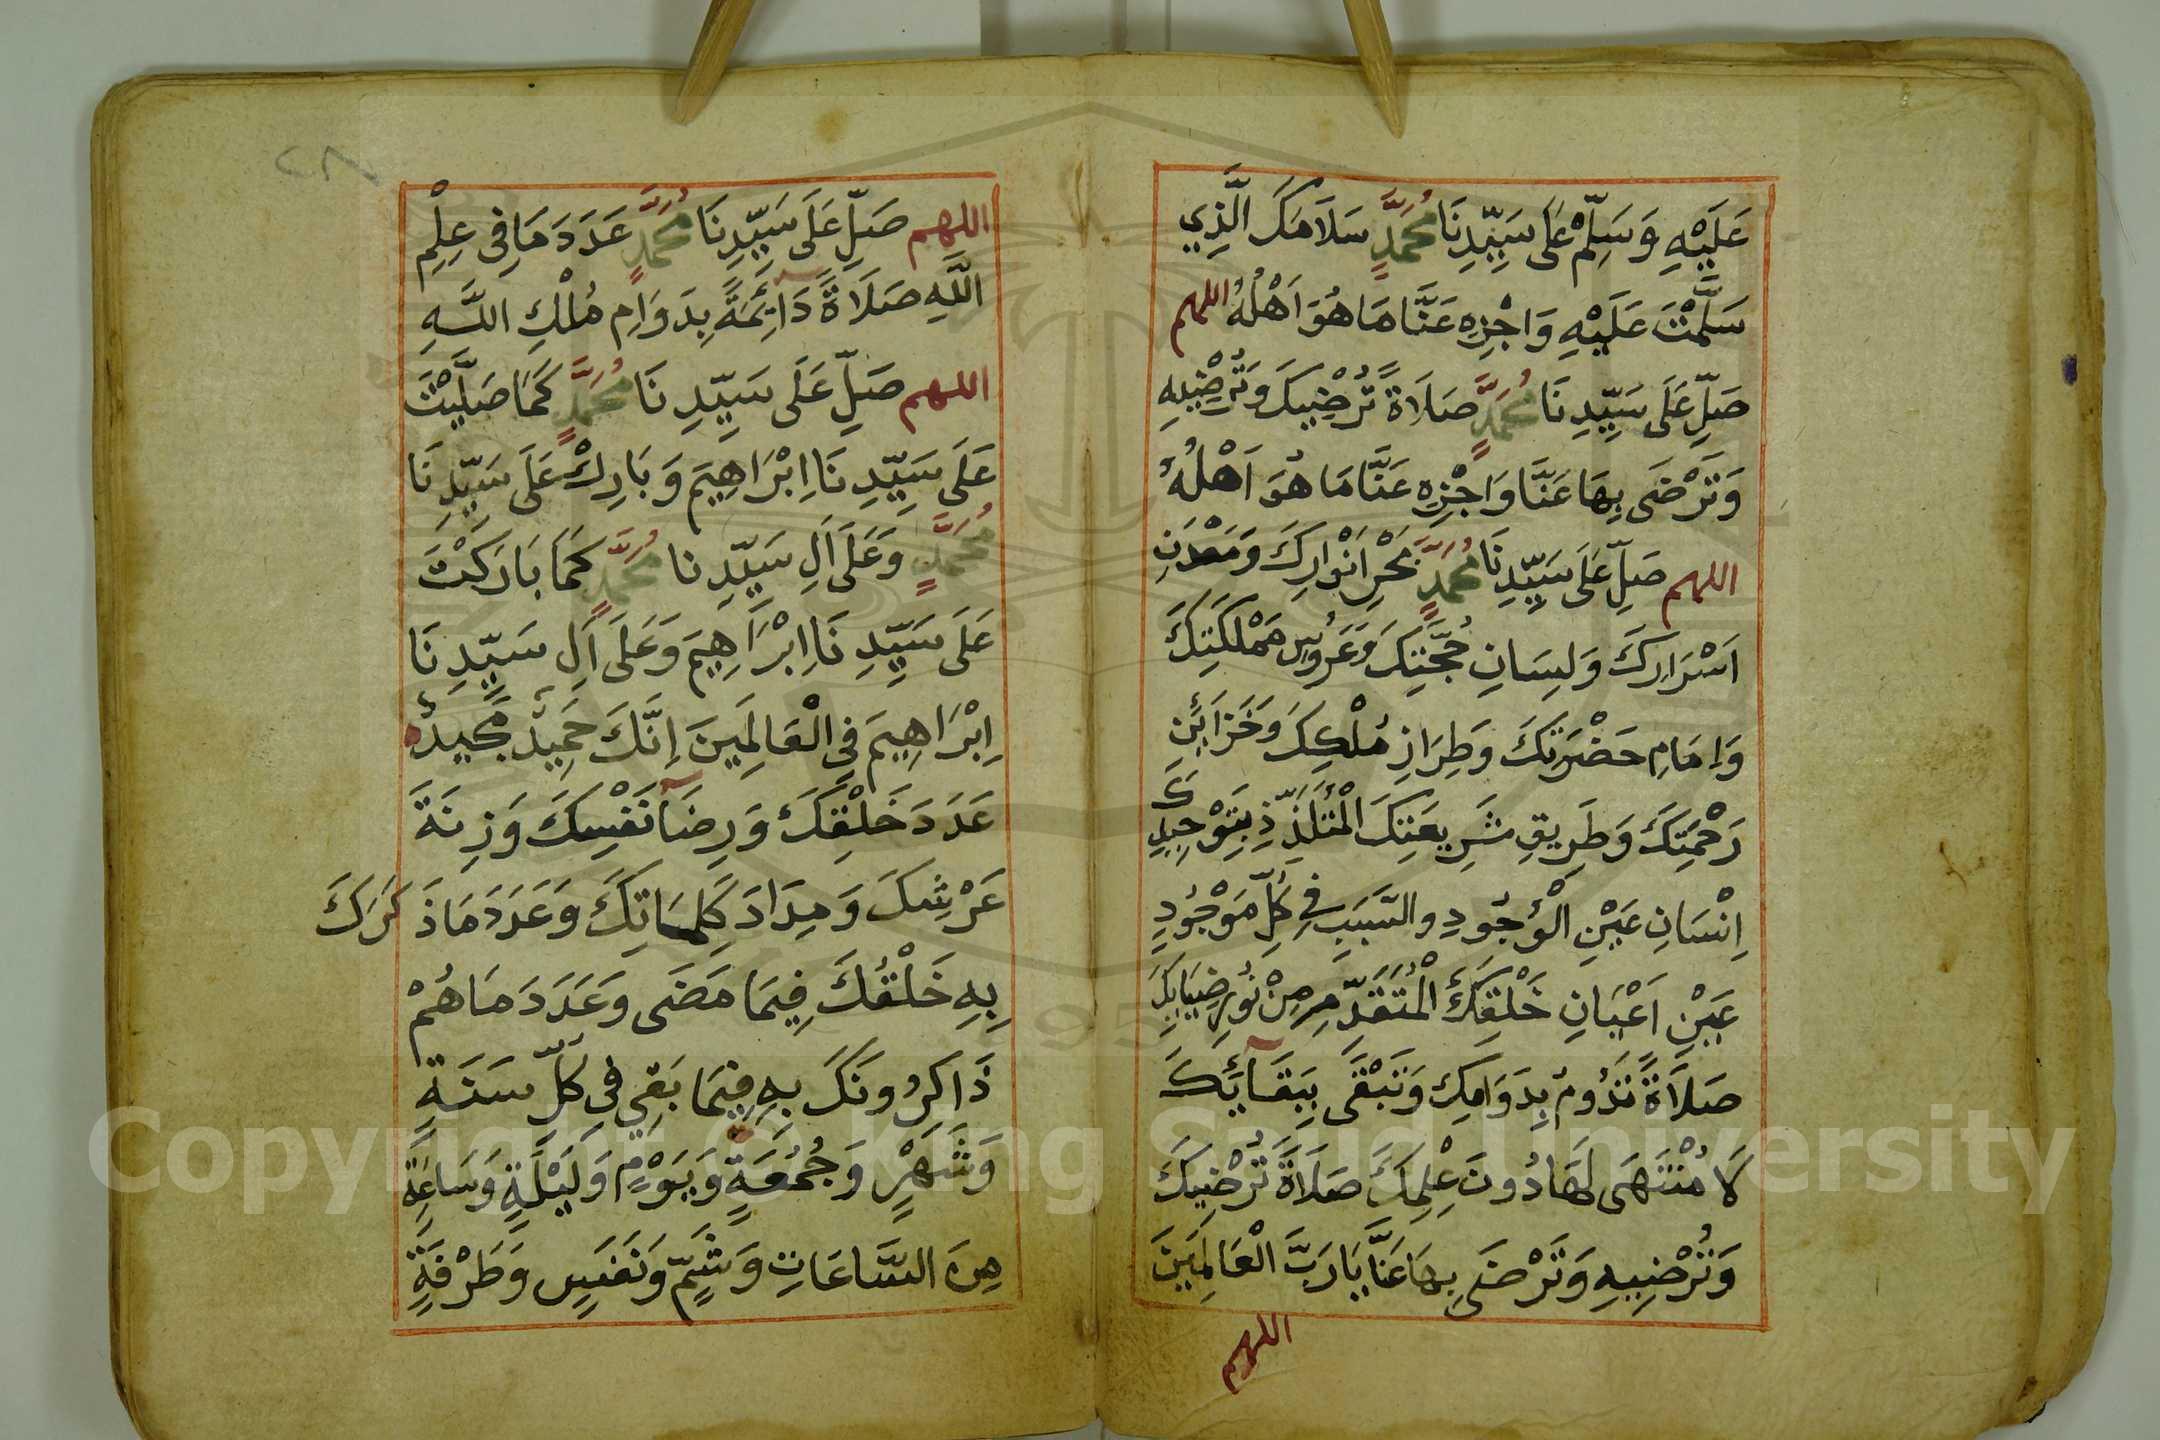 عَلَيْهِ وَسَلِّمْ عَلَى سَيِّدِنَا مُحَمَّدٍ سَلَامَكَ الَّذِي
سَلَّمْتَ عَلَيْهِ وَاجْزِهِ عَنَّا مَا هُوَ اَهْلُهُ اللهم
صَلِّ عَلَى سَيِّدِنَا مُحَمَّدٍ صَلَاةً تُرْضِيكَ وَتُرْضِيهِ
وَتَرْضَى بِهَا عَنَّا وَاجْزِهِ عَنَّا مَا هُوَ اَهْلُهُ
اللهم صَلِّ عَلَى سَيِّدِنَا مُحَمَّدٍ بَحْرِ اَنْوَارِكَ وَمَعْدَنِ
اَسْرَارِكَ وَلِسَانِ حُجَّتِكَ وَعَرُوسِ مَمْلَكَتِكَ
وَاِمَامِ حَضْرَتِكَ وَطِرَازِ مُلْكِكَ وَخَزَائِنِ
رَحْمَتِكَ وَطَرِيقِ شَرِيعَتِكَ الْمُتَلَذِّذِ بِتَوْحِيدِكَ
اِنْسَانِ عَيْنِ الْوُجُودِ والسَّبَبِ فِي كُلِّ مَوْجُودٍ
عَيْنِ اَعْيَانِ خَلْقِكَ الْمُتَقَدِّمِ مِنْ نُورِ ضِيَايِكَ
صَلَاةً تَدُومُ بِدَوَامِكَ وَتَبْقَى بِبَقَآئِكَ
لَا مُنْتَهَى لَهَا دُونَ عِلْمِكَ صَلَاةً تُرْضِيكَ
وَتُرْضِيهِ وَتَرْضَى بِهَا عَنَّا يَا رَبَّ الْعَالَمِينَ
اللهم
٢٨
اللهم صَلِّ عَلَى سَيِّدِنَا مُحَمَّدٍ عَدَدَ مَا فِي عِلْمِ
اللَّهِ صَلَاةً دَائِمَةً بِدَوَامِ مُلْكِ اللَّهِ
اللهم صَلِّ عَلَى سَيِّدِنَا مُحَمَّدٍ كَمَا صَلَّيْتَ
عَلَى سَيِّدِنَا اِبْرَاهِيمَ وَبَارِكْ عَلَى سَيِّدِنَا
مُحَمَّدٍ وَعَلَى اَلِ سَيِّدِنا مُحَمَّدٍ كَمَا بَارَكْتَ
عَلَى سَيِّدِنَا اِبْرَاهِيمَ وَعَلَى اَلِ سَيِّدِنَا
اِبْرَاهِيمَ فِي الْعَالَمِينَ اِنَّكَ حَمِيدٌ مَجِيدٌ
عَدَدَ خَلْقِكَ وَرِضَآ نَفْسِكَ وَزِنَةَ
عَرْشِكَ وَمِدَادَ كَلِمَاتِكَ وَعَدَدَ مَا ذَكَرَكَ
بِهِ خَلْقُكَ فِيمَا مَضَى وَعَدَدَ مَا هُمْ
ذَاكِرُونَكَ بِهِ فِيمَا بَقِي فِي كُلِّ سَنَةٍ
وَشَهْرٍ وَجُمُعَةٍ وَيَوْمٍ وَلَيْلَةٍ وَسَاعَةٍ
مِنَ السَّاعَاتِ وَشَمٍّ وَنَفَسٍ وَطَرْفَةٍ
Copyright © King Saud University